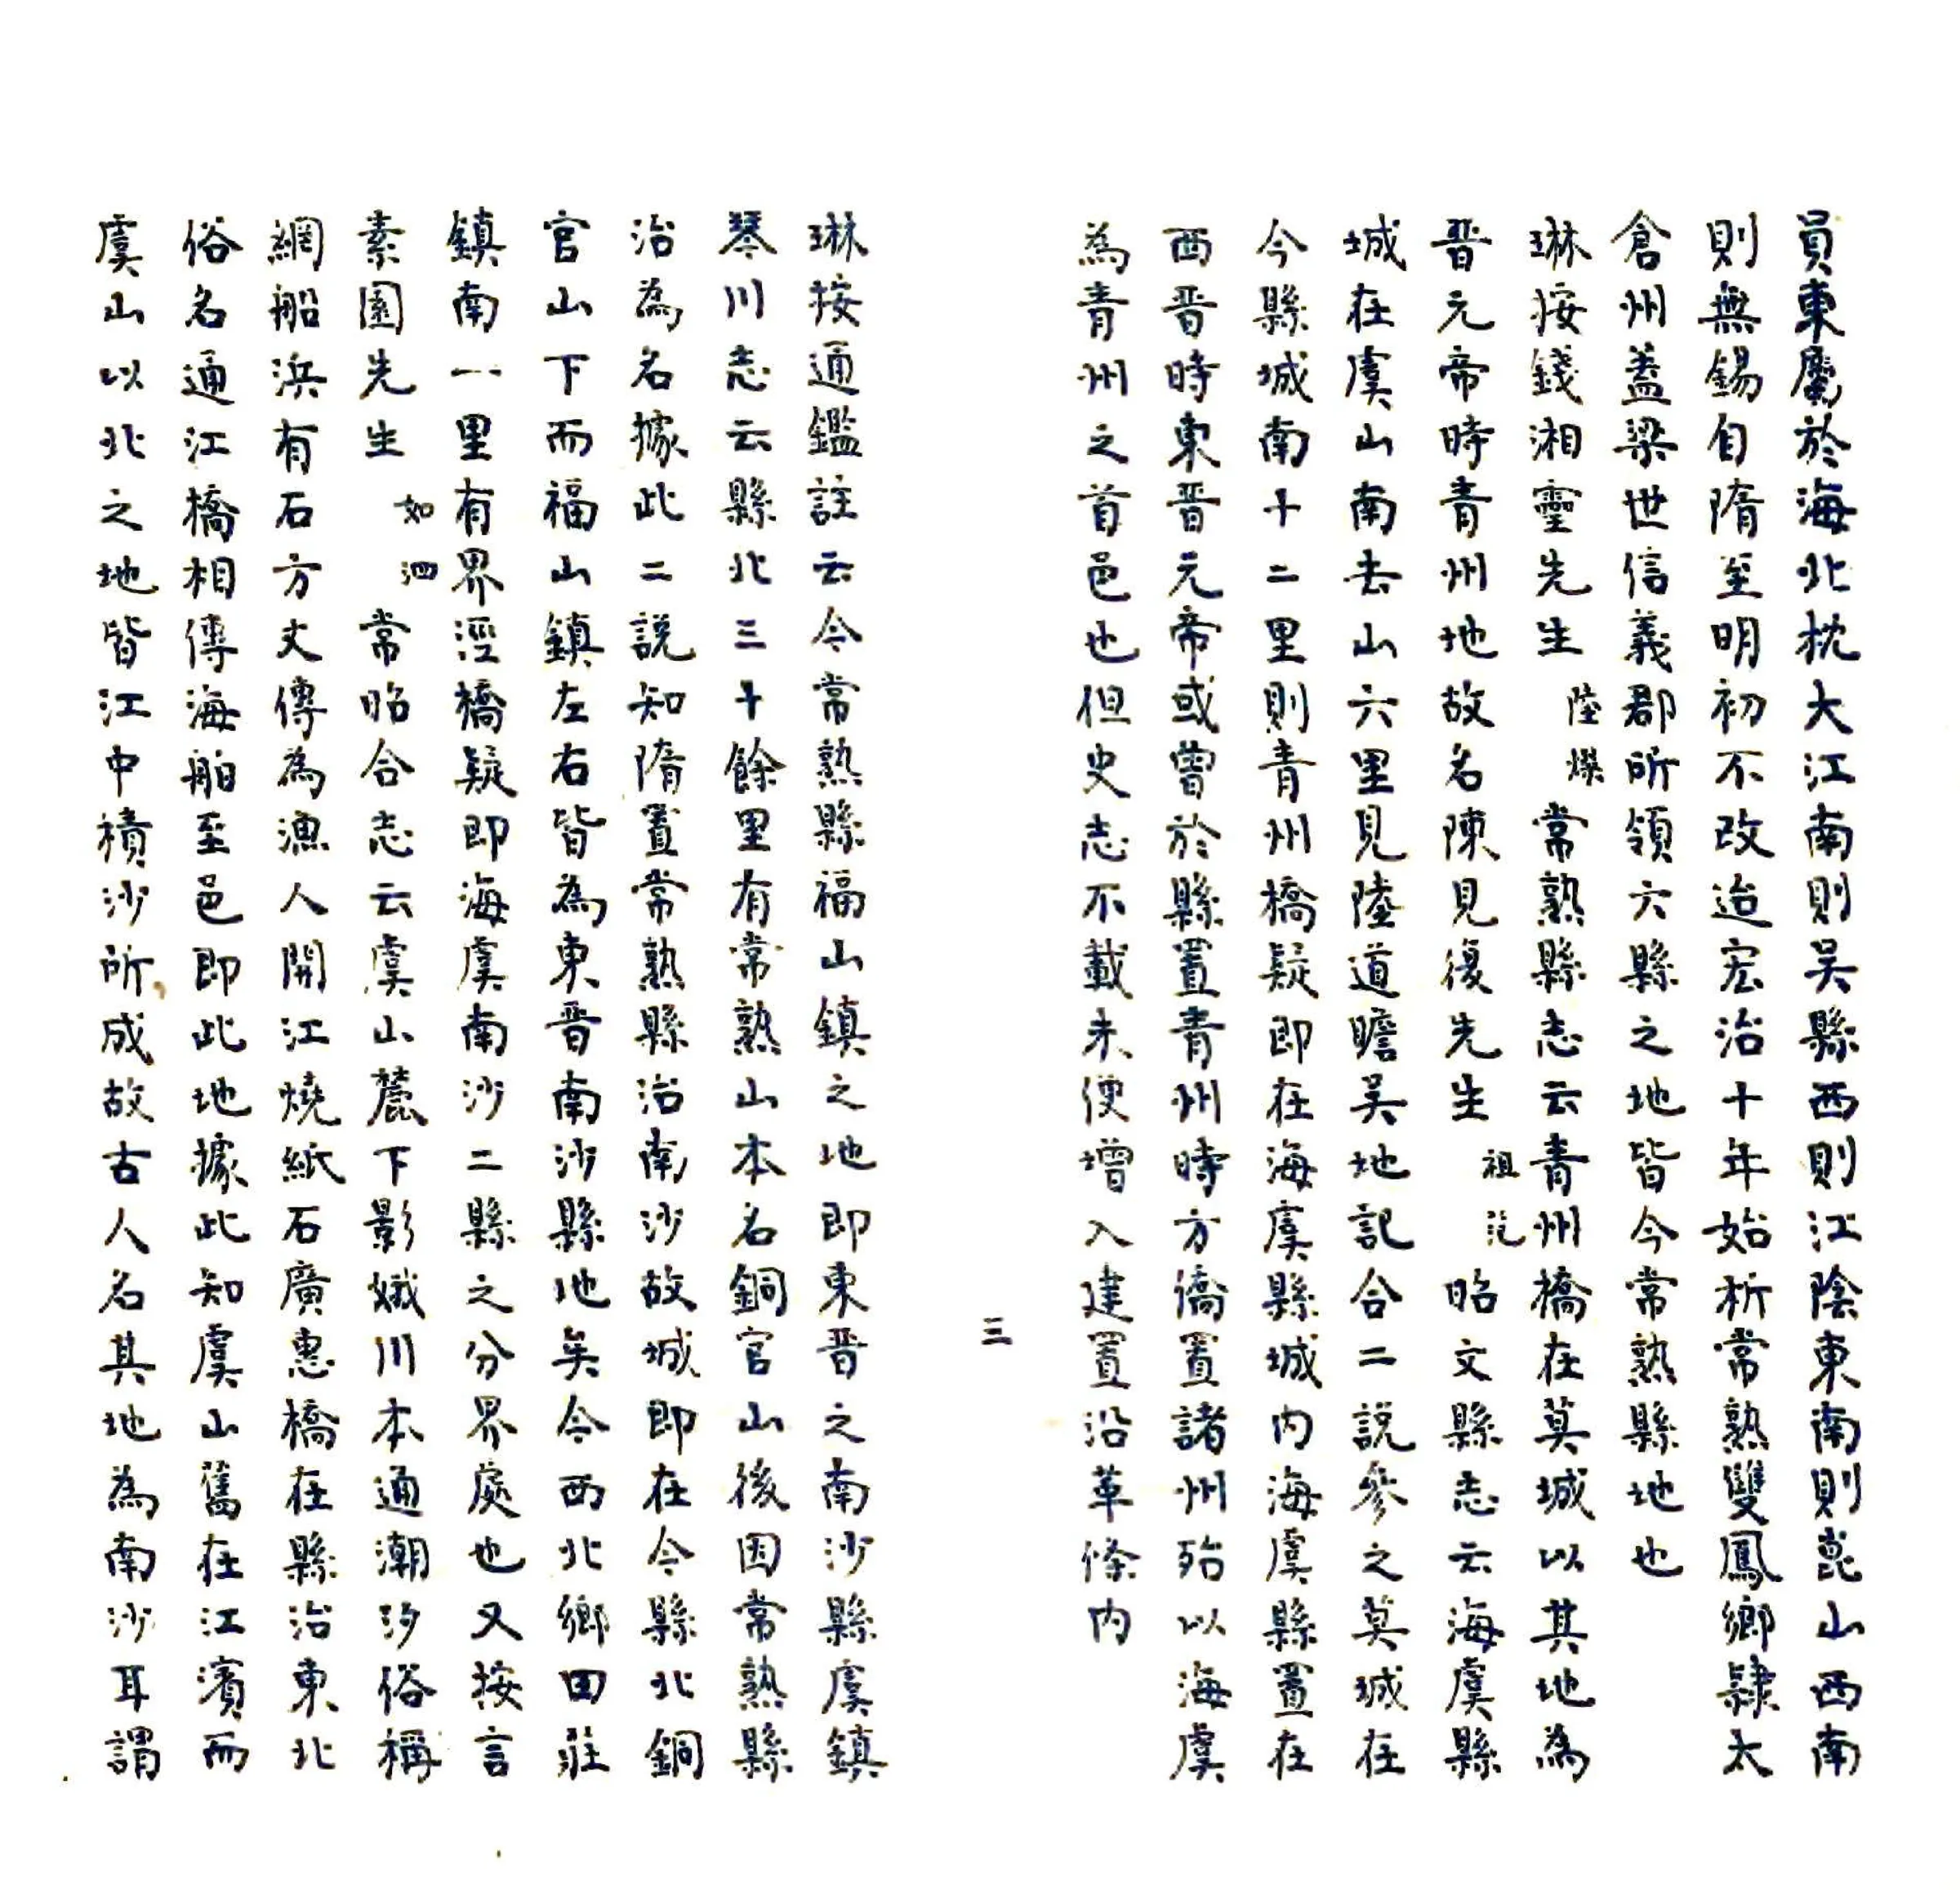 員東屬於海北枕大江南則吴縣西則江陰東南則崑山西南
則無錫自隋至明初不改迨宏治十年始析常熟雙鳳鄉隸太
倉州蓋梁世信義郡所領六縣之地皆今常熟縣地也
琳按錢湘靈先生陸燦常熟縣志云青州橋在莫城以其地為
晋元帝時青州地故名陳見復先生祖范昭文縣志云海虞縣
城在虞山南去山六里見陸道瞻吴地記合二説參之莫城在
今縣城南十二里則青州橋疑即在海虞縣城内海虞縣置在
西晋時東晋元帝或曾於縣置青州時方僑置諸州殆以海虞
為青州之首邑也但史志不載未便增入建置沿革條内
三
琳按通鑑註云今常熟縣福山鎮之地即東晋之南沙縣虞鎮
琴川志云縣北三十餘里有常熟山本名銅官山後因常熟縣
治為名據此二説知隋置常熟縣治南沙故城即在今縣北銅
官山下而福山鎮左右皆為東晋南沙縣地矣今西北鄉田莊
鎮南一里有界涇橋疑即海虞南沙二縣之分界處也又按言
素園先生如泗常昭合志云虞山麓下影娥川本通潮汐俗稱
網船浜有石方丈傳為漁人開江燒紙石廣惠橋在縣治東北
俗名通江橋相傳海舶至邑即此地據此知虞山舊在江濱而
虞山以北之地皆江中積沙所成故古人名其地為南沙耳謂